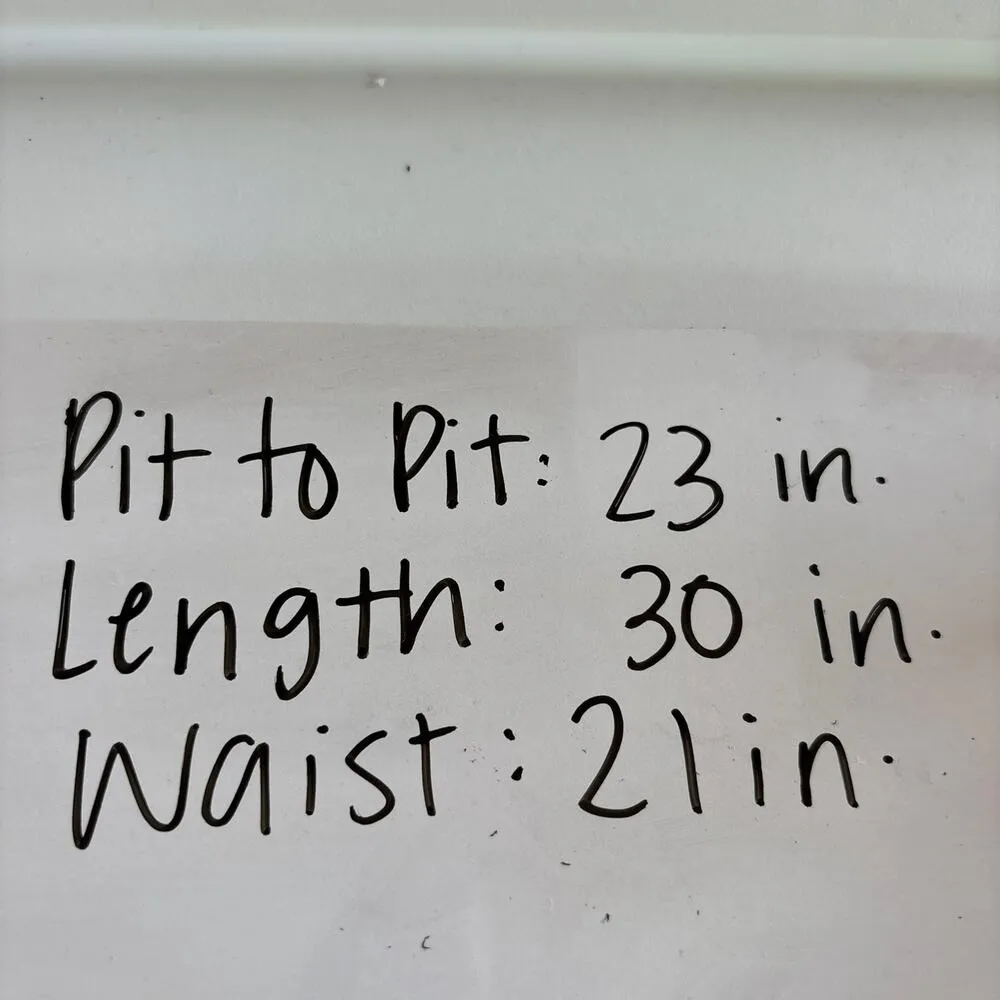 Pit to Pit: 23 in.
Length: 30 in.
Waist: 21 in.